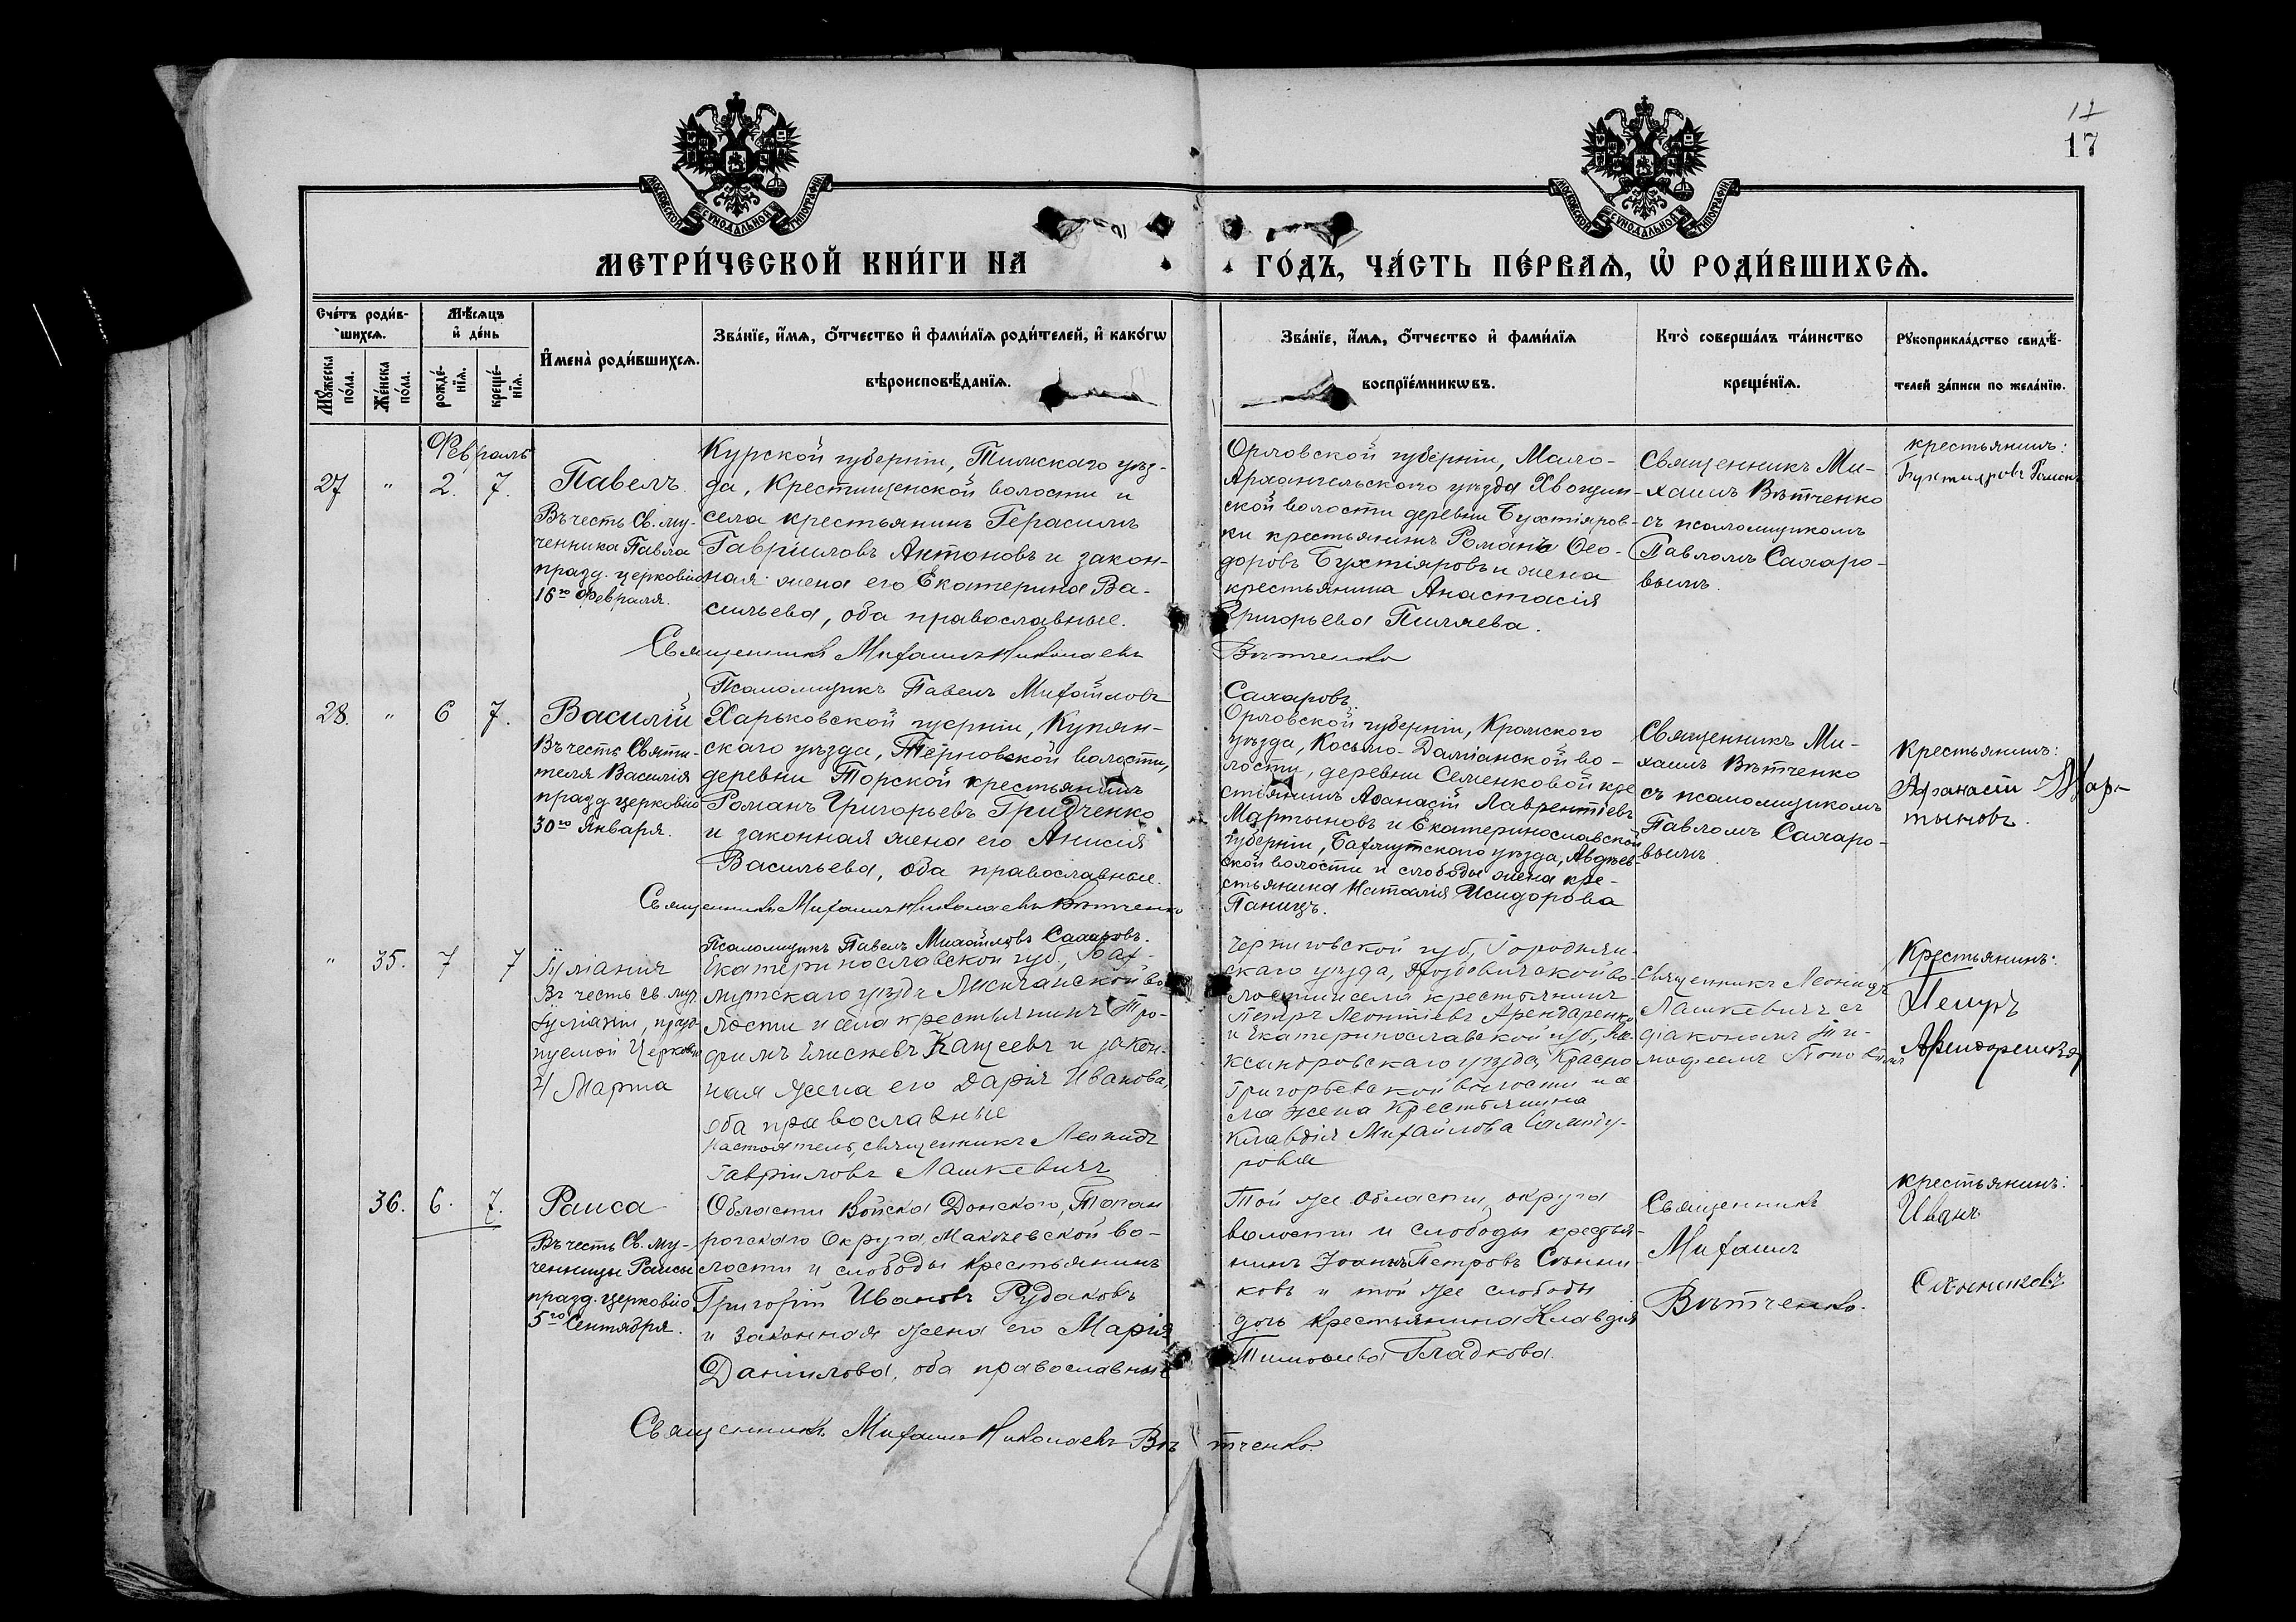 17
17
МОСКОВСКОЙ СѴНОДАЛЬНОЙ ТИПОГРАФІИ
МОСКОВСКОЙ СѴНОДАЛЬНОЙ ТИПОГРАФІИ
МЕТРИ́ЧЕСКОЙ КНИ́ГИ НА
ГО́ДЪ, ЧА́СТЬ ПЕ́РВАѦ, Ѡ҆ РОДИ́ВШИХСѦ.
Сче́тъ роди́в-
шихсѧ.
Мꙋ́жеска по́ла.
Же́нска по́ла.
Мѣ́сѧцъ
и҆ де́нь
рожде́-
нїѧ.
креще́-
нїѧ.
И҆мена̀ роди́вшихсѧ.
Зва́нїе, и҆́мѧ, ѻ҆́тчество и҆ фами́лїѧ роди́телей, и҆ како́гѡ
вѣроисповѣ́данїѧ.
Зва́нїе, и҆́мѧ, ѻ҆́тчество и҆ фами́лїѧ
воспрїе́мникѡвъ.
Кто̀ соверша́лъ та́инство
креще́нїѧ.
Рꙋкоприкла́дство свидѣ́-
телей за́писи по жела́нїю.
Февраль
27 " 2. 7.
Павелъ.
Въ честь Св. му-
ченника Павла
празд. церковію
16го Февраля.
Курской губерніи, Тимскаго уѣз-
да, Крестищенской волости и
села крестьянинъ Герасимъ
Гавріиловъ Антоновъ и закон-
ная жена его Екатерина Ва-
сильева, оба православные.
Орловской губерніи, Мало-
Архангельскаго уѣзда Хвощин-
ской волости деревни Бухтіяров-
ки крестьянинъ Романъ Ѳео-
доровъ Бухтіяровъ и жена
крестьянина Анастасія
Григорьева Пиляева.
Священникъ Ми-
хаилъ Вѣтченко
съ псаломщикомъ
Павломъ Сахаро-
вымъ.
крестьянинъ:
Бухтияровъ Роман
Священникъ Михаилъ Николаевъ
Вѣтченко
Псаломщикъ Павелъ Михайловъ
Сахаровъ.
28. " 6 7.
Василій
Въ честь Святи-
теля Василія
празд. церковію
30го Января.
Харьковской губерніи, Купян-
скаго уѣзда, Терновской волости,
деревни Торской крестьянинъ
Романъ Григорьевъ Гридченко
и законная жена его Анисія
Васильева, оба православные.
Орловской губерніи, Кромского
уѣзда, Косьмо-Даміанской во-
лости, деревни Семенковой кре
стьянинъ Аѳанасій Лаврентіевъ
Мартыновъ и Екатеринославской
губерніи, Бахмутскаго уѣзда, Авдѣев-
ской волости и слободы жена кре-
стьянина Наталія Исидорова
Паницъ.
Священникъ Ми-
хаилъ Вѣтченко
съ псаломщикомъ
Павломъ Сахаро-
вымъ.
Крестьянинъ:
Афанасій Мар-
тыновъ.
Священникъ Михаилъ Николаевъ Вѣтченко
Псаломщикъ Павелъ Михайловъ Сахаровъ.
" 35. 7 7
Іуліанія
Въ честь св. муч.
Іуліаніи, празд-
нуемой Церковію
4 Марта
Екатеринославской губ., Бах-
мутскаго уѣзда Лисичанской во
лости и села крестьянинъ Тро-
фимъ Елисѣевъ Кащеевъ и закон-
ная жена его Дарія Иванова,
оба православные
Настоятель, священникъ Леонидъ
Гавріиловъ Лашкевичъ
Черниговской губ., Городнян-
скаго уѣзда, во-
лости и села крестьянинъ
Петръ Леонтіевъ Арендаренко
и Екатеринославской губ., Але-
ксандровскаго уѣзда, Красно
Григорьевской волости и се
ла жена крестьянина
Клавдія Михайлова
рова
священникъ Леонидъ
Лашкевичъ съ
діакономъ Ти-
мофеемъ Поповымъ
Крестьянинъ:
Петръ
Арендаренко
36. 6. 7.
Раиса
Въ честь Св. му-
ченницы Раисы
празд. церковію
5го Сентября.
Области Войска Донского, Таган
рогскаго Округа, Макѣевской во-
лости и слободы крестьянинъ
Григорій Ивановъ Рудаковъ
и законная жена его Марія
Даніилова, оба православные
Той же области, округа
волости и слободы крестья-
нинъ Іоаннъ Петровъ Сѣнни-
ковъ и той же слободы
дочь крестьянина Клавдія
Тимоѳеева Гладкова.
Священникъ
Михаилъ
Вѣтченко.
крестьянинъ:
Иванъ
Сѣнниковъ
Священникъ Михаилъ Николаевъ Вѣтченко